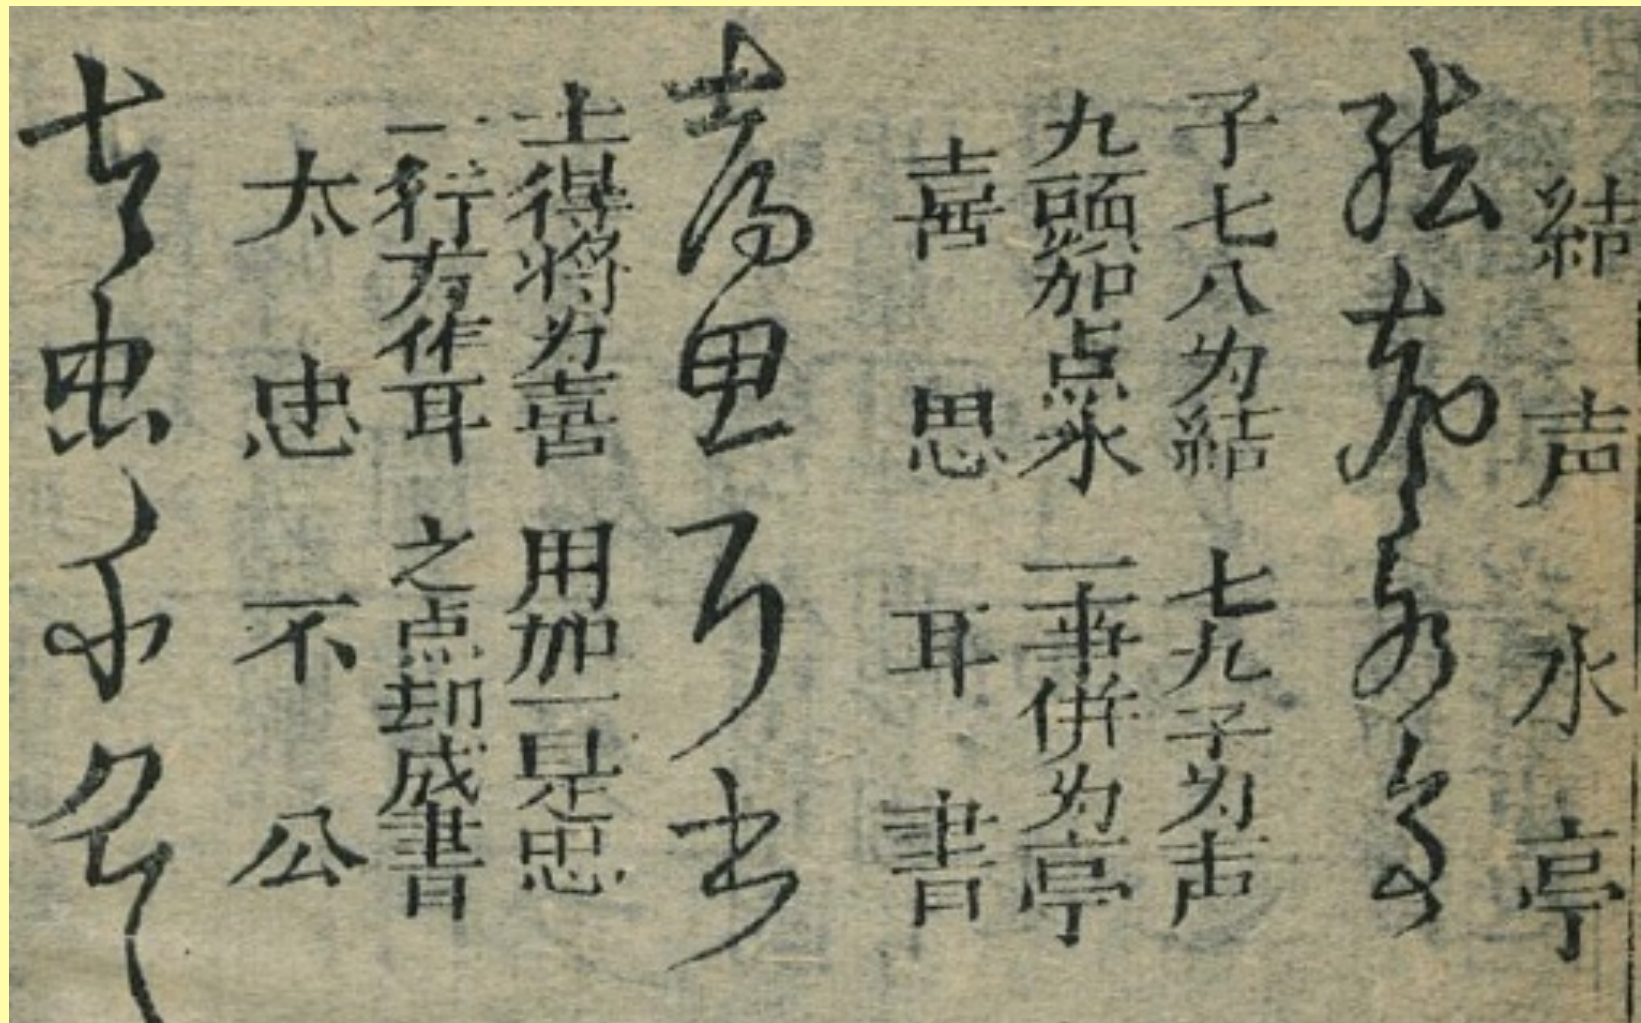 結声水亭
結声水亭
子七八为結　七九子为声
九頭加点水　一事併为亭
喜思耳書
喜思耳書
上得将为喜　用加一是思
一行方作耳　之点却成書
太忠不公